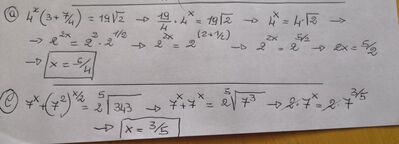 a) 4^x(3+7/4)=19√2 → 19/4·4^x=19√2 → 4^x=4·√2 →
→ 2^2x=2^2·2^1/2 → 2^2x=2^(2+1/2) → 2^2x=2^5/2 → 2x=5/2
→ x=5/4
c) 7^x+(7^2)^x/2=2 ⁵√343 → 7^x+7^x=2 ⁵√7^3 → 2·7^x=2·7^3/5
→ x=3/5